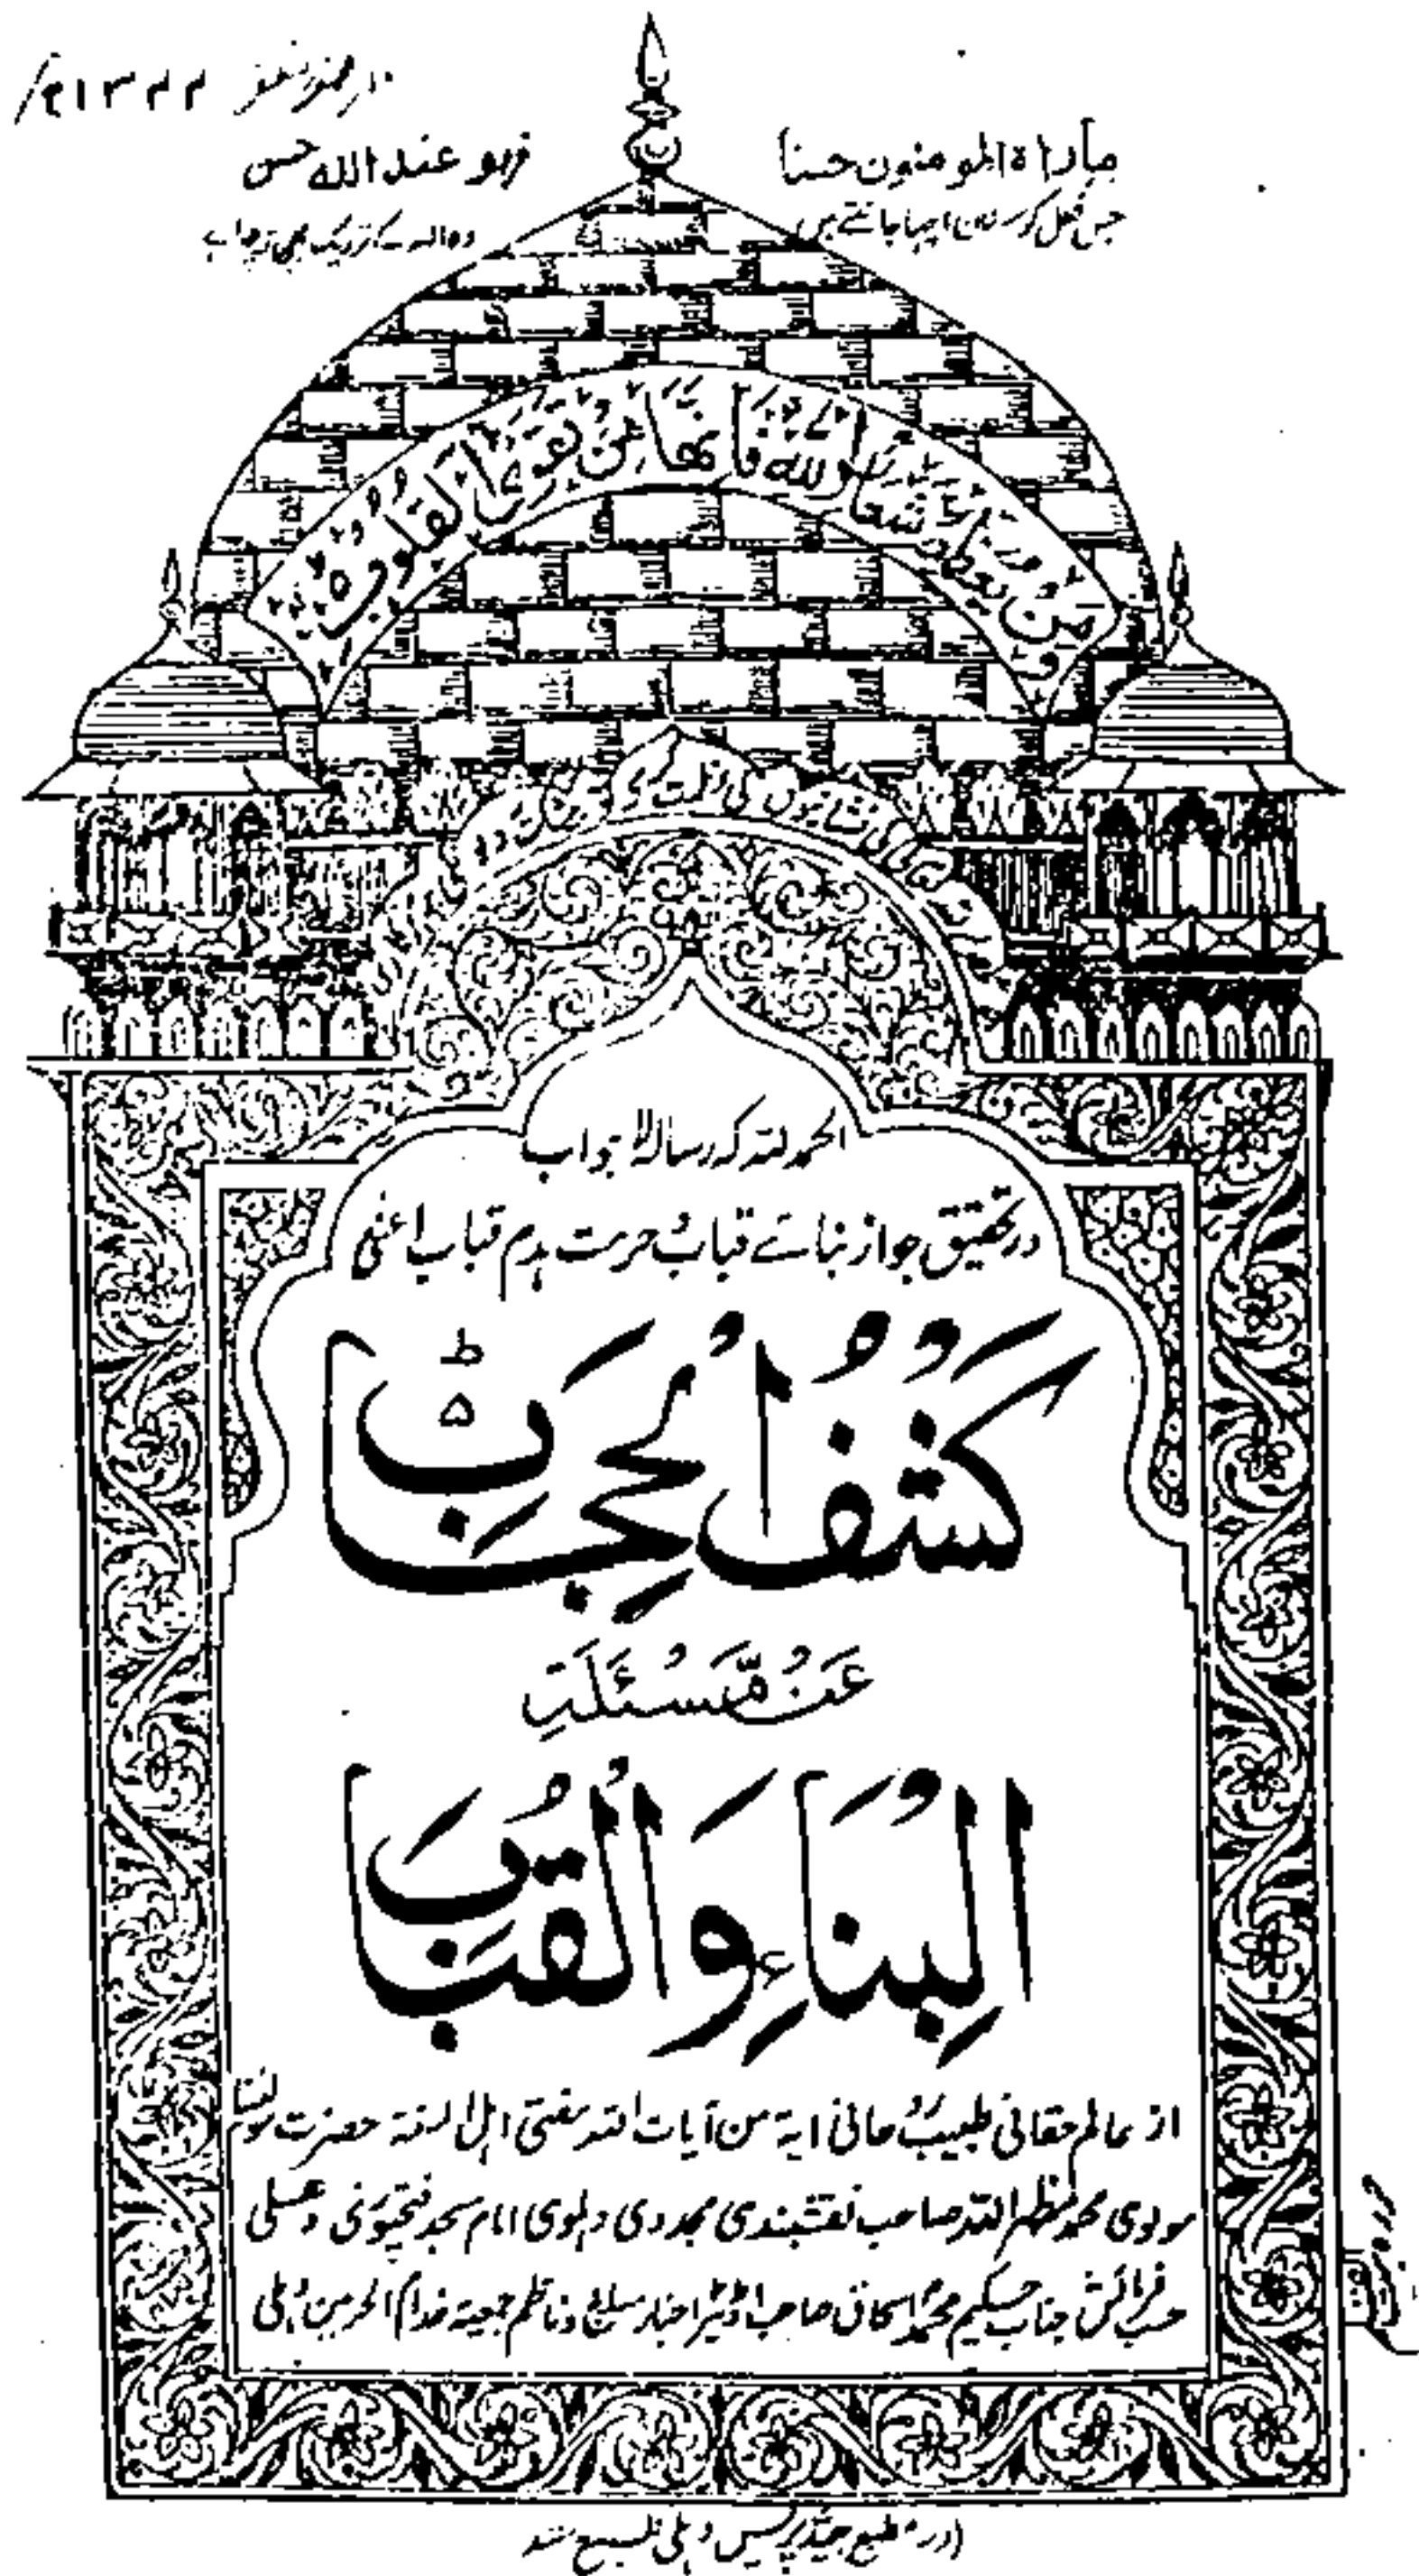 ۱۳۴۴
مارآہ المومنون حسنا فہو عند اللہ حسن
جس فعل کو مسلمان اچھا جانتے ہیں وہ اللہ کے نزدیک بھی اچھا ہے
وَمَنْ يُّعَظِّمْ شَعَائِرَ اللهِ فَاِنَّهَا مِنْ تَقْوَى الْقُلُوْبِ
الحمد للہ کہ رسالہ لاجواب
در تحقیق جواز بنائے قباب و حرمت ہدم قباب اعنی
كَشْفُ الْحِجَابِ
عَنْ مَّسْئَلَتِ
الْبِنَاءِ وَالْقُبَابِ
از عالم حقانی طبیب روحانی ایۃ من آیات اللہ مفتی اہل السنۃ حضرت مولٰنا
مولوی محمد مظہر اللہ صاحب نقشبندی مجددی دہلوی امام مسجد فتحپوری دہلی
حسب فرمائش جناب حکیم محمد اسحاق صاحب اڈیٹر اخبار مبلغ و ناظم جمعیۃ خدام الحرمین دہلی
در مطبع جید پریس دہلی طبع شد